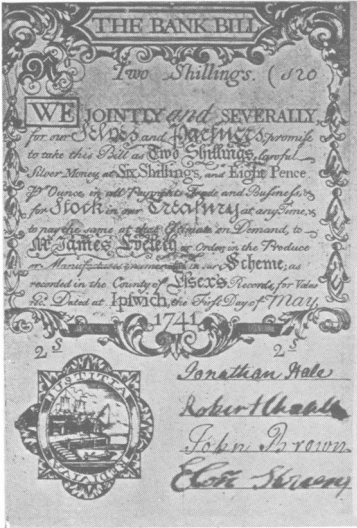 THE BANK BILL
Two Shillings. (820
WE JOINTLY and SEVERALLY
for our Selves and Partners, promise
to take this Bill as Two Shillings, Lawful
Silver Money, at Six Shillings, and Eight Pence
Ounce, in all Payments, Trade and Business, &
for Stock in our Treasury at any Time, &
to pay the same at that Estimate on Demand, to
Mr James Eveleth or Order, in the Produce
or Manufactures enumerated in our Scheme; as
recorded in the County of Essex's Records, for Value
rec. Dated at Ipswich, the First Day of May,
1741
2 S 2 S
Jonathan Hale
Robert Choate
John Brown